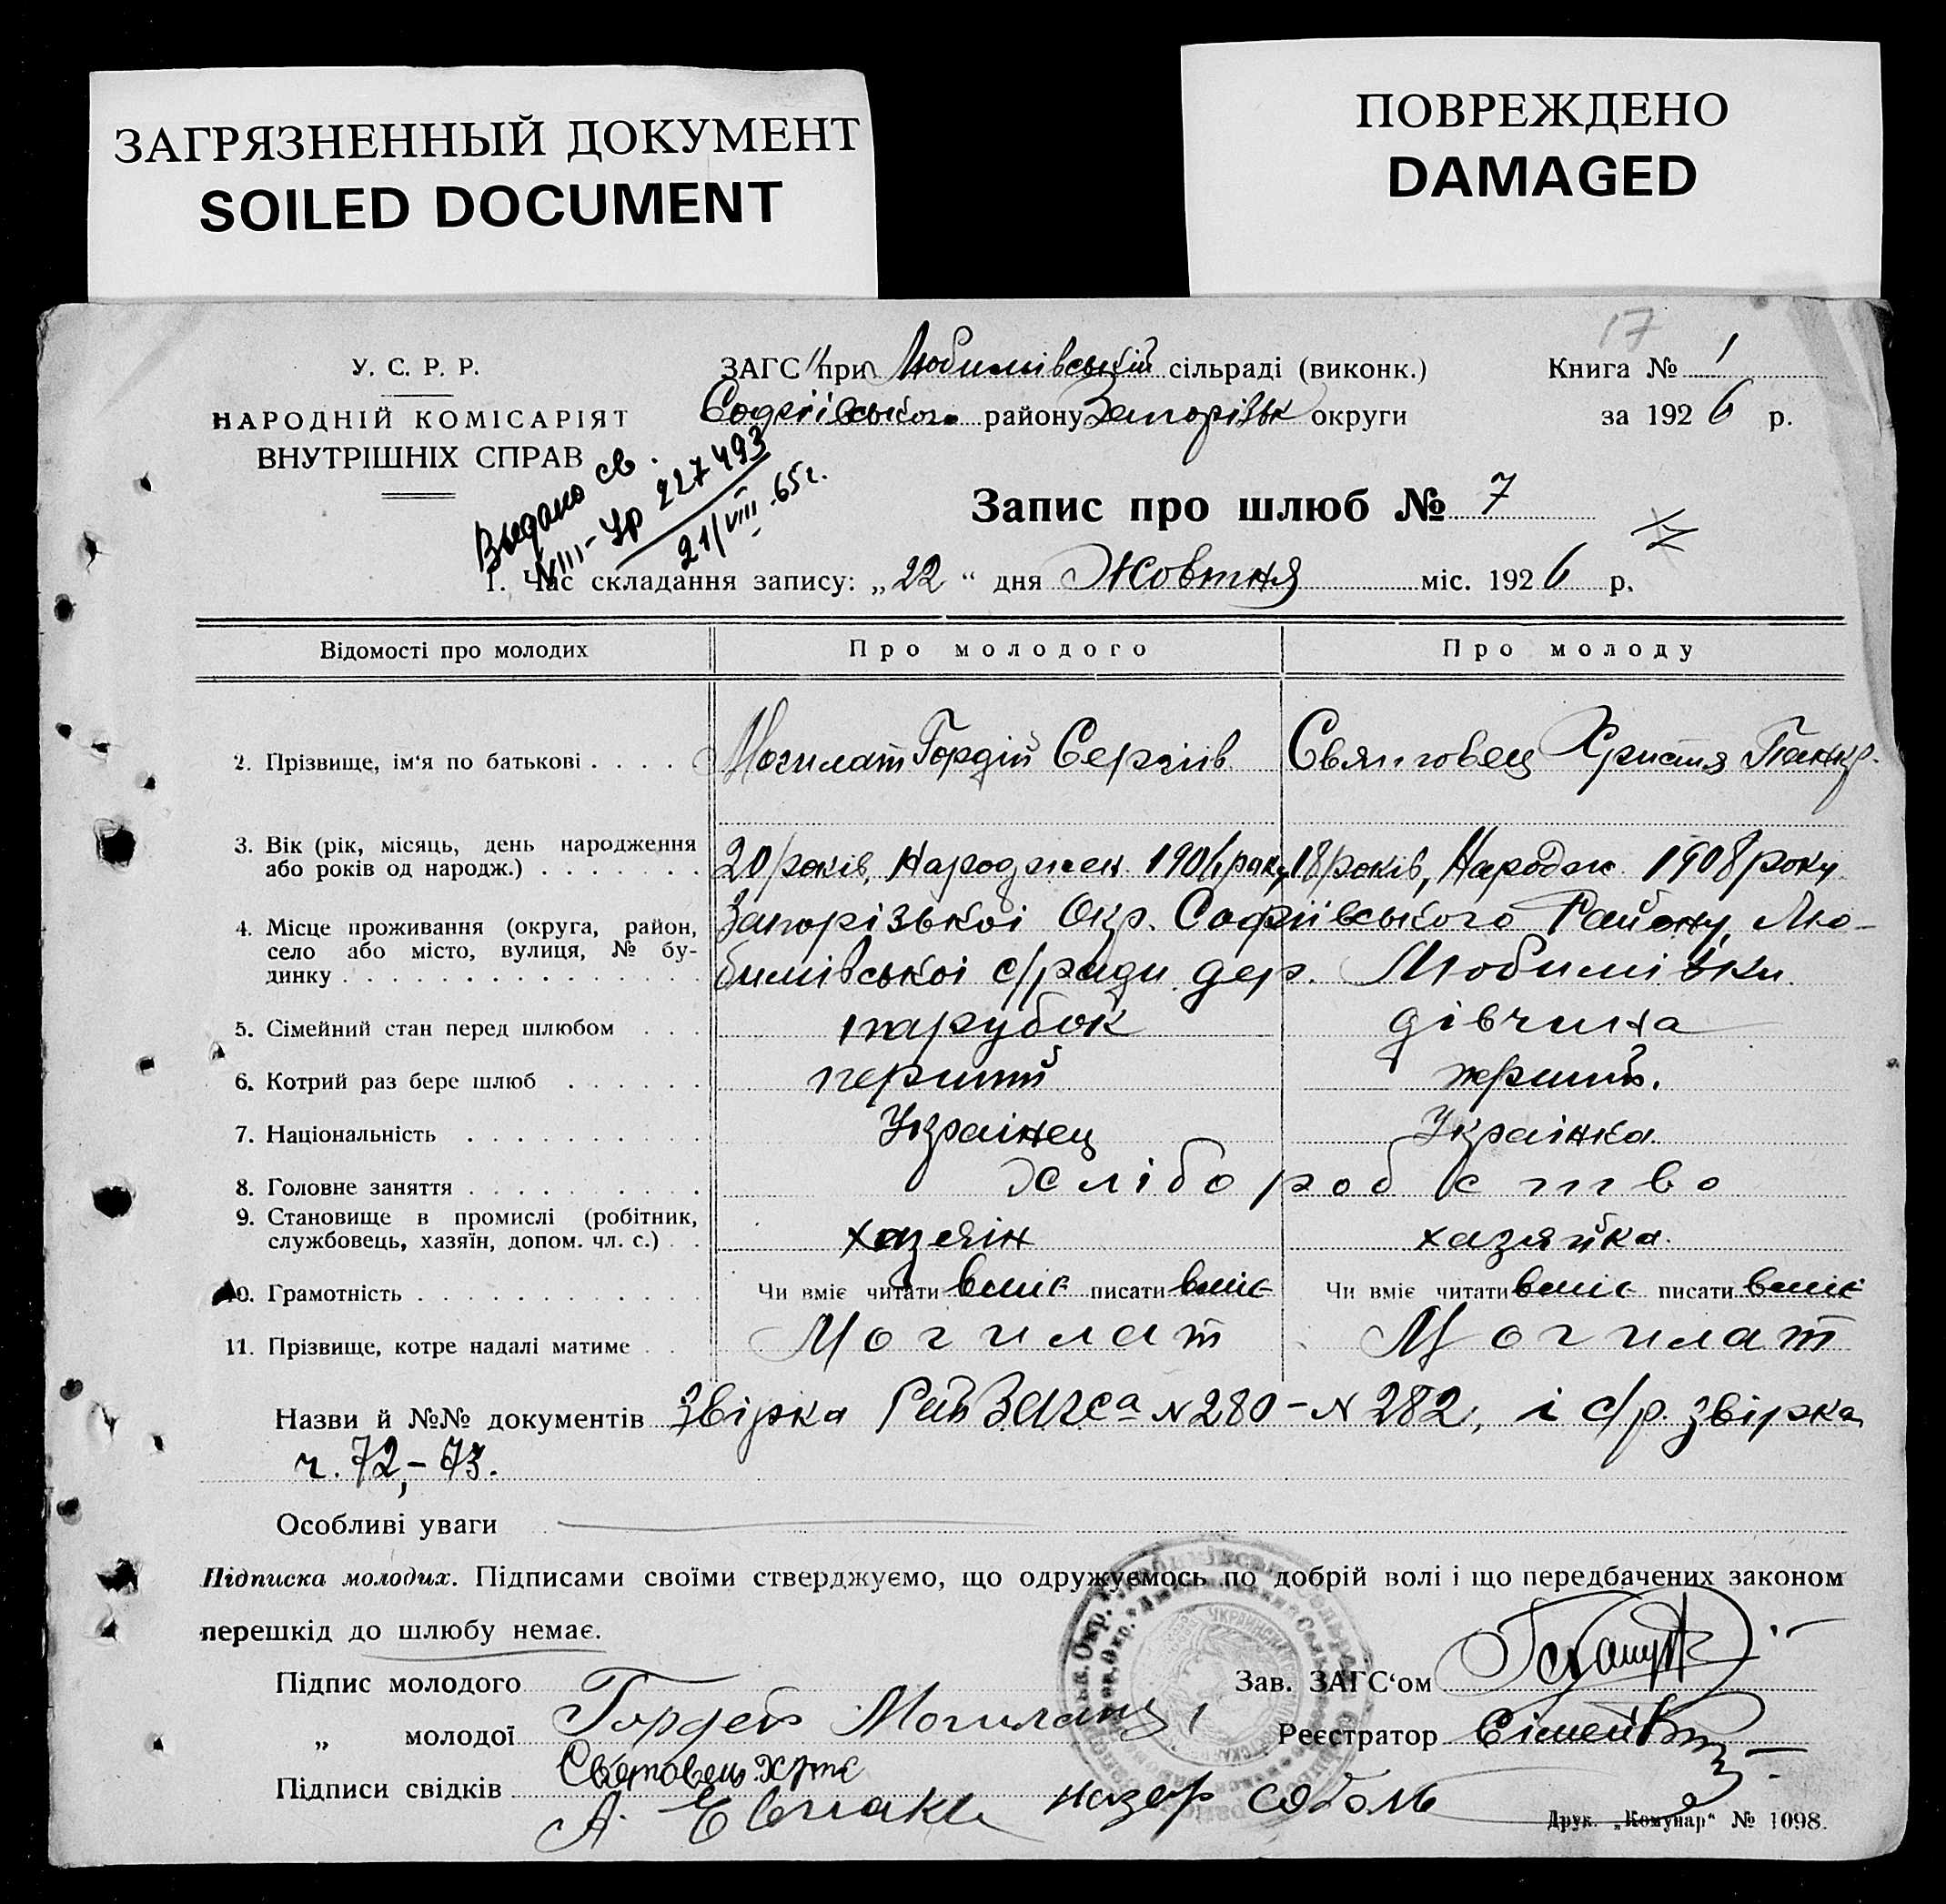 ЗАГРЯЗНЕННЫЙ ДОКУМЕНТ
SOILED DOCUMENT
ПОВРЕЖДЕНО
DAMAGED
17
У. С. Р. Р.
НАРОДНІЙ КОМІСАРІЯТ
ВНУТРІШНІХ СПРАВ
ЗАГС при Любимівській сільраді (виконк.)
Софіївського району Запорізьк округи
Книга № 1
за 1926 р.
Выдано св.
VIII-УР 227493
21/VIII-65г.
Запис про шлюб № 7
1. Час складання запису: „22“ дня Жовтня міс. 1926 р.
Відомості про молодих Про молодого Про молоду
2. Прізвище, ім‘я по батькові . . . . Могилат Гордій Сергіів Христя Панкр.
3. Вік (рік, місяць, день народження
або років од народж.) . . . . . . . 20 років, Народжен 1906 року 18 років, Народж 1908 року
4. Місце проживання (округа, район,
село або місто, вулиця, № бу-
динку . . . . . . . . . . . . . . .
Запорізькоі Окр. Софіівського Району, Лю-
бимівськоі с/ради дер. Любимівки.
5. Сімейний стан перед шлюбом . . . парубок дівчина
6. Котрий раз бере шлюб . . . . . . перший перший.
7. Національність . . . . . . . . . . Украінец Украінка
8. Головне заняття . . . . . . . . . . Хліборобство
9. Становище в промислі (робітник,
службовець, хазяїн, допом. чл. с.) . . хазяін хазяйка
10. Грамотність . . . . . . . . . . . . Чи вміє читати вміє писати вміє Чи вміє читати вміє писати вміє
11. Прізвище, котре надалі матиме . . Могилат Могилат
Назви й №№ документів Звірка РайЗАГСа N 280 – N 282, і с/р. звірка
ч. 72,-73.
Особливі уваги
Підписка молодих. Підписами своїми стверджуємо, що одружуємось по добрій волі і що передбачених законом
перешкід до шлюбу немає.
Підпис молодого Гордей Могилат
„ молодої
Підписи свідків
назар соболь
Зав. ЗАГС‘ом
Реєстратор
Друк. „Комунар“ № 1098.